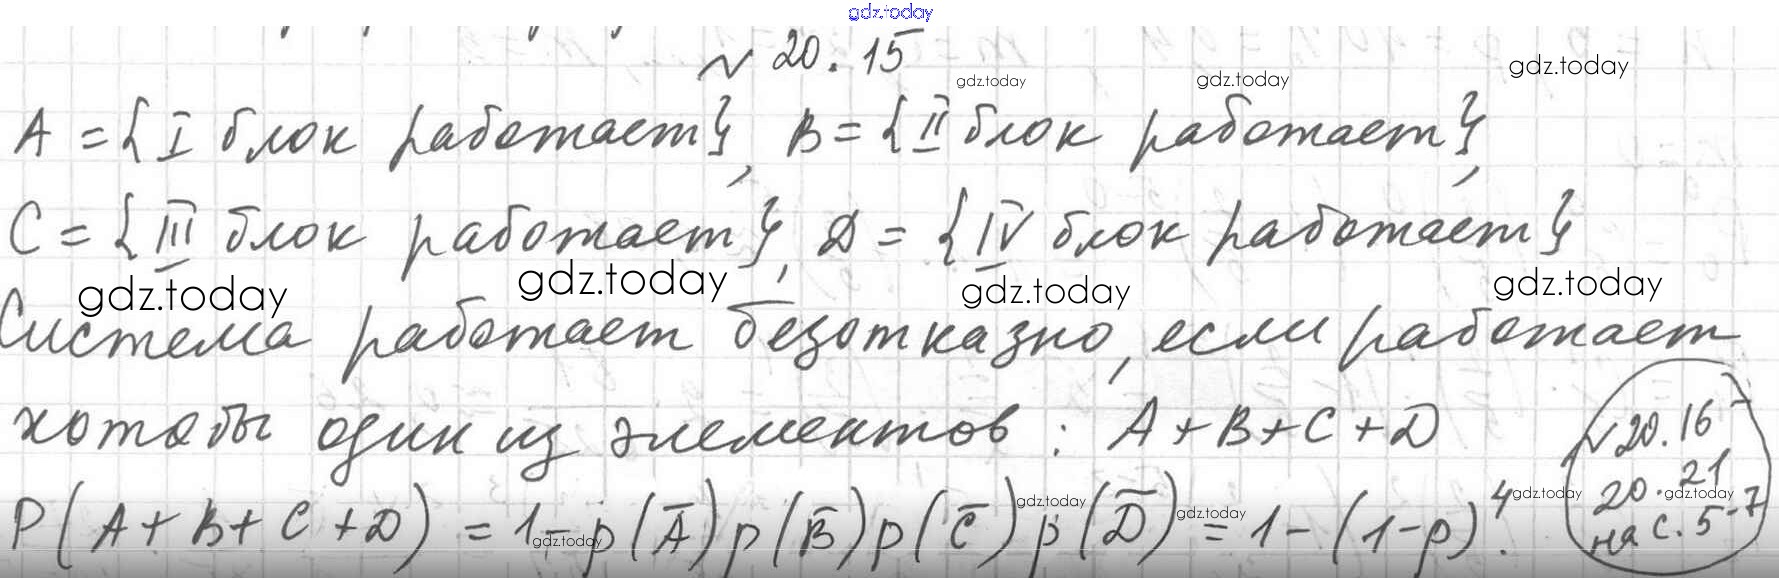 gdz.today
№ 20.15
gdz.today gdz.today gdz.today
A = {I блок работает}, B = {II блок работает},
C = {III блок работает}, D = {IV блок работает}
gdz.today gdz.today gdz.today gdz.today
Система работает безотказно, если работает
хотя бы один из элементов: A + B + C + D
P(A + B + C + D) = 1 - p(A̅) p(B̅) p(C̅) p(D̅) = 1 - (1-p)⁴.
gdz.today gdz.today gdz.today gdz.today gdz.today
№ 20.16 -
20.21
на с. 5-7